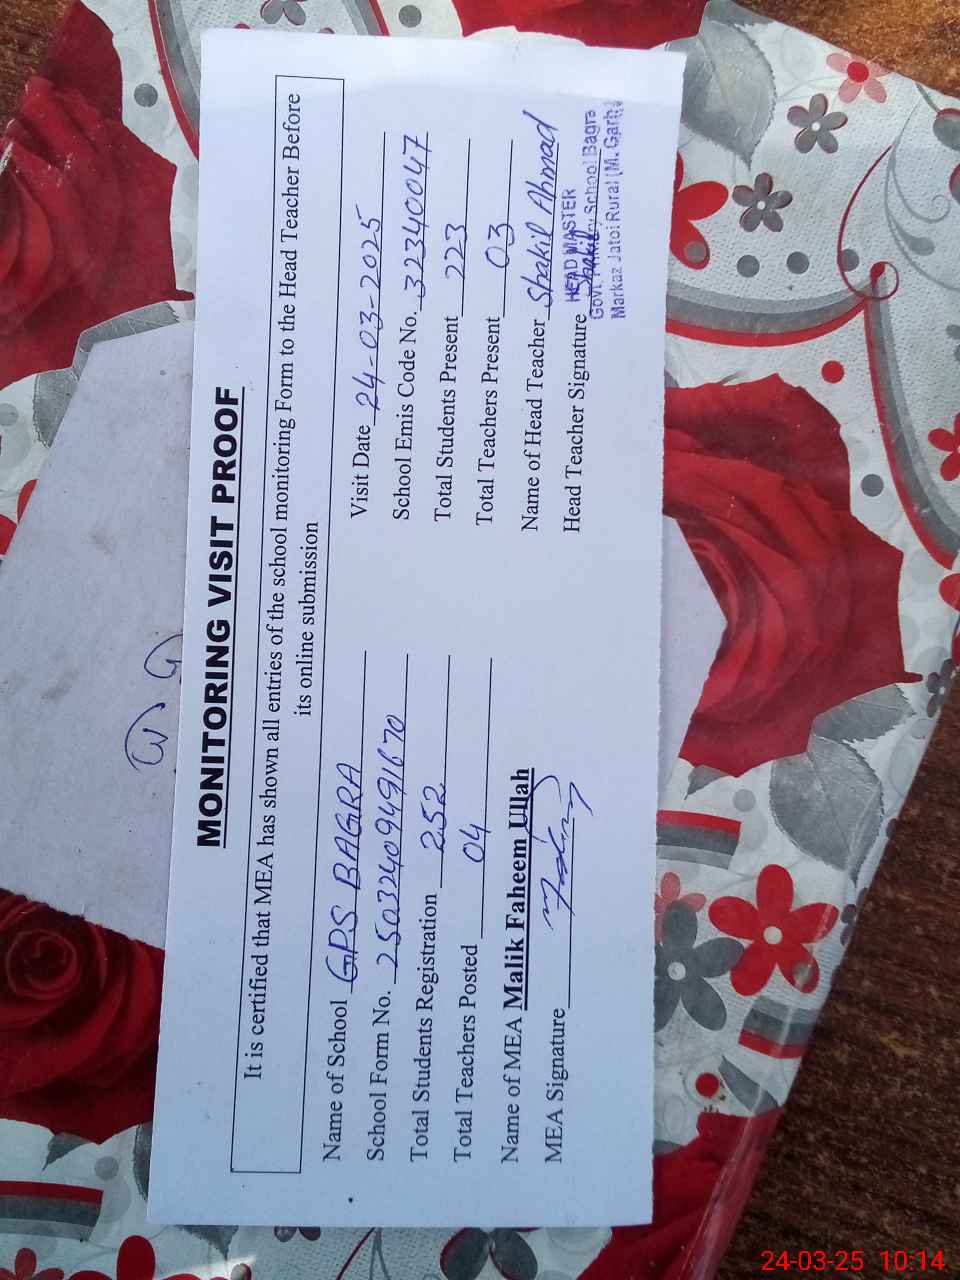 MONITORING VISIT PROOF
It is certified that MEA has shown all entries of the school monitoring Form to the Head Teacher Before
its online submission
Name of School GPS BAGRA
Visit Date 24-03-2025
School Form No. 25032409491670
School Emis Code No. 32340047
Total Students Registration 252
Total Students Present 223
Total Teachers Posted 04
Total Teachers Present 03
Name of MEA Malik Faheem Ullah
Name of Head Teacher Shakil Ahmad
MEA Signature
Head Teacher Signature Shakil
HEAD MASTER
Govt. Primary School Bagra
Markaz Jatoi Rural (M. Garh)
24-03-25 10:14